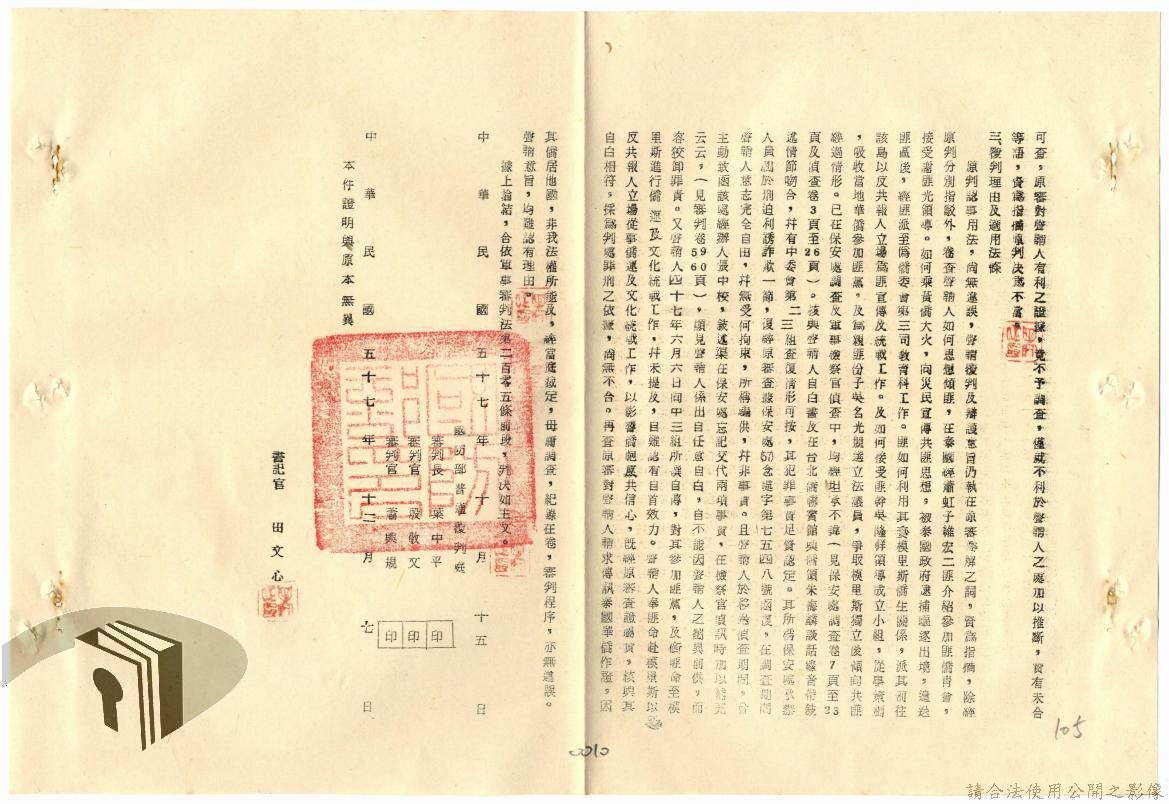 可查,原審對聲請人有利之證據,竟不予調查,僅就不利於聲請人之處加以推斷,實有未合
等語,資為指摘原判決為不當。
三、覆判理由及適用法條
原判認事用法,尚無違誤,聲請覆判及辯護意旨仍執在原審辯解之詞,資為指摘,除經
原判分別指駁外,卷查聲請人如何思想傾匪,在泰國經蕭虹子維宏二匪介紹參加匪僑青會,
接受謝匪光領導。如何乘黃僑大火,向災民宣傳共匪思想,被泰國政府逮捕驅逐出境,遣送
匪區後,經匪派至偽僑委會第三司教育科工作。匪如何利用其妻模里斯僑生關係,派其前往
該島以反共報人立場為匪宣傳及統戰工作。及如何接受匪幹吳隆祥領導成立小組,從事策劃
,吸收當地華僑參加匪黨,及為親匪份子吳名光競選立法議員,爭取模里斯獨立後傾向共匪
經過情形。已在保安處調查及軍事檢察官偵查中,均經坦承不諱(見保安處調查卷7頁至23
頁及偵查卷3頁至26頁)。核與聲請人自白書及在台北僑務賓館與僑領朱梅麟談話錄音帶敍
述情節吻合,并有中委會第二 三組查復情形可按,其犯罪事實足資認定。其所稱保安處承辦
人員出於刑迫利誘詐欺一節,復經原審查據保安處57念處字第七五四八號函復,在調查期間
聲請人意志完全自由,并無受何拘束,所稱騙供,并非事實。且聲請人於移送偵查期間,曾
主動致函該處經辦人晨中校,敍述渠在保安處忘記交代兩項事實,在檢察官偵訊時加以補充
云云,(見審判卷90頁56頁),顯見聲請人係出自任意自白,自不能因聲請人之翻異前供,而
容狡卸罪責。又聲請人四十七年六月六日向中三組所撰自傳,對其參加匪黨,及銜匪命至模
里斯進行僑 運及文化統戰工作,并未提及,自難認有自首效力。聲請人奉匪命赴模里斯以
反共報人立場從事僑運及文化統戰工作,以影響僑胞反共信心,既經原審查證屬實,核與其
自白相符,採為判處罪刑之依據,尚無不合。再查原審對聲請人請求傳訊泰國華僑作證,因
其僑居地國,非我法權所能及,經當庭裁定,毋庸調查,紀錄在卷,審判程序,亦無違誤。
聲請意旨,均難認有理由。
據上論結,合依軍事審判法第二百零五條前段,判決如主文。
中華民國五十七年十月十五日
國防部普通覆判庭
審判長 葉中平 印
審判官 殷敬文 印
審判官 蕭與規 印
中華民國五十七年十二月七日
本件證明與原本無異
書記官 田文心
105
0010
請合法使用公開之影像